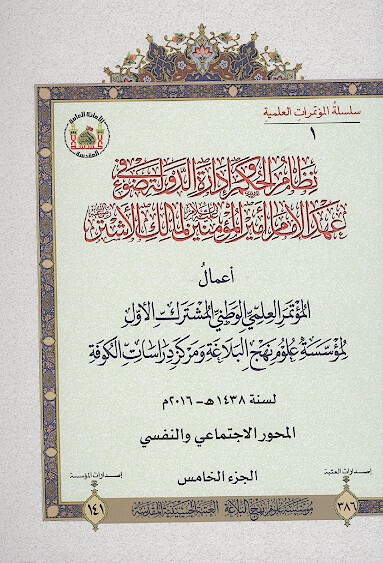 سلسلة المؤتمرات العلمية
١
نظام الحكم وإدارة الدولة في ضوء
عهد الإمام أمير المؤمنين عليه السلام لمالك الأشتر
أعمال
المؤتمر العلمي الوطني المشترك الأول
لمؤسسة علوم نهج البلاغة ومركز دراسات الكوفة
لسنة ١٤٣٨هـ - ٢٠١٦م
المحور الاجتماعي والنفسي
الجزء الخامس
إصدارات العتبة
٣٨٦
إصدارات المؤسسة
١٤١
مؤسسة علوم نهج البلاغة العتبة الحسينية المقدسة